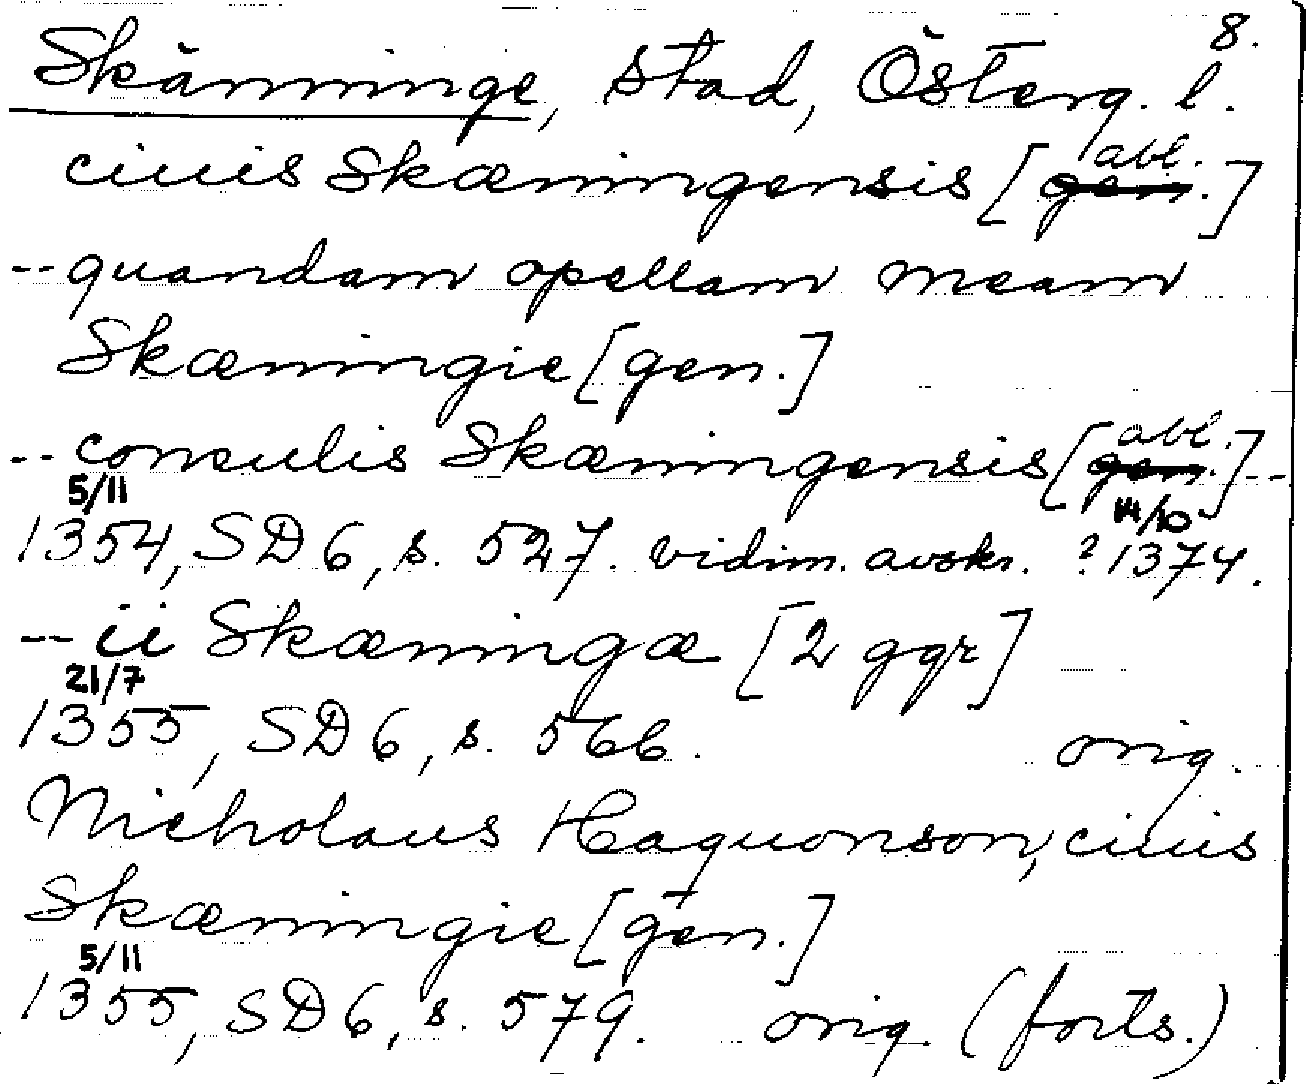 8.
Skänninge, stad, Österg. l.
ciuis Skæningensis [gen. abl.]
-- quandam opellam meam
Skæningie [gen.]
-- consulis Skæningensis [gen. abl.] --
5/11 14/10
1354, SD 6, s. 527. vidim. avskr. ? 1374.
-- ii Skæningæ [2 ggr]
21/7
1355, SD 6, s. 566. orig.
Nicholaus Haquonson, ciuis
Skæningie [gen.]
5/11
1355, SD 6, s. 579. orig. (forts.)